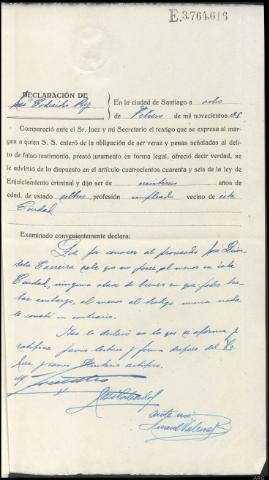 E.3764616
DECLARACIÓN DE
José
En la ciudad de Santiago a ocho
de Febrero de mil novecientos
Compareció ante el Sr. Juez y mi Secretario el testigo que se expresa al mar-
gen a quien S. S. enteró de la obligación de ser veraz y penas señaladas al deli-
to de falso testimonio, prestó juramento en forma legal, ofreció decir verdad, se
le advirtió de lo dispuesto en el artículo cuatrocientos cuarenta y seis de la ley de
Enjuiciamiento criminal y dijo ser de años de
edad, de estado soltero, profesión empleado vecino de esta
Ciudad,
Examinado convenientemente declara:
Que por conocer al procesado José
Carreira sabe que no posee al menos en esta
Ciudad, ninguna clase de bienes en que poder tra-
bar embargo, al menos al testigo nunca nada
le constó en contrario.
Así lo declaró en lo que se afirma y
ratifica previa lectura y firma después del
Juez y conmigo Secretario certifico.
ante mi